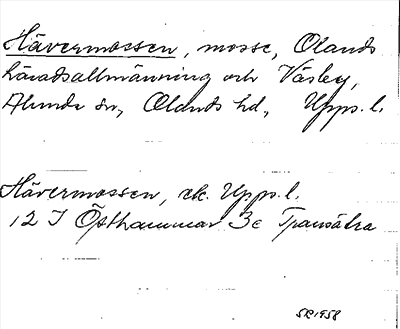 Hävermossen, mosse, Olands
häradsallmänning och Väsby,
Alunda sn, Olands hd, Upps. l.
Hävermossen, ek. Upps. l.
12 I Östhammar 3c Transätra
SR 1958